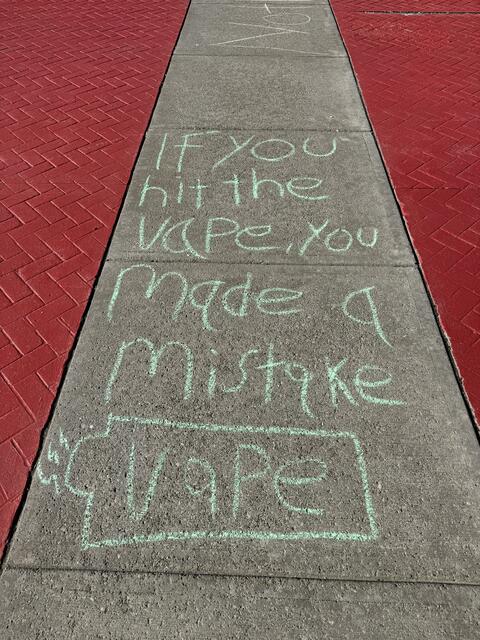 If you
hit the
vape, you
Made a
Mistake
Vape